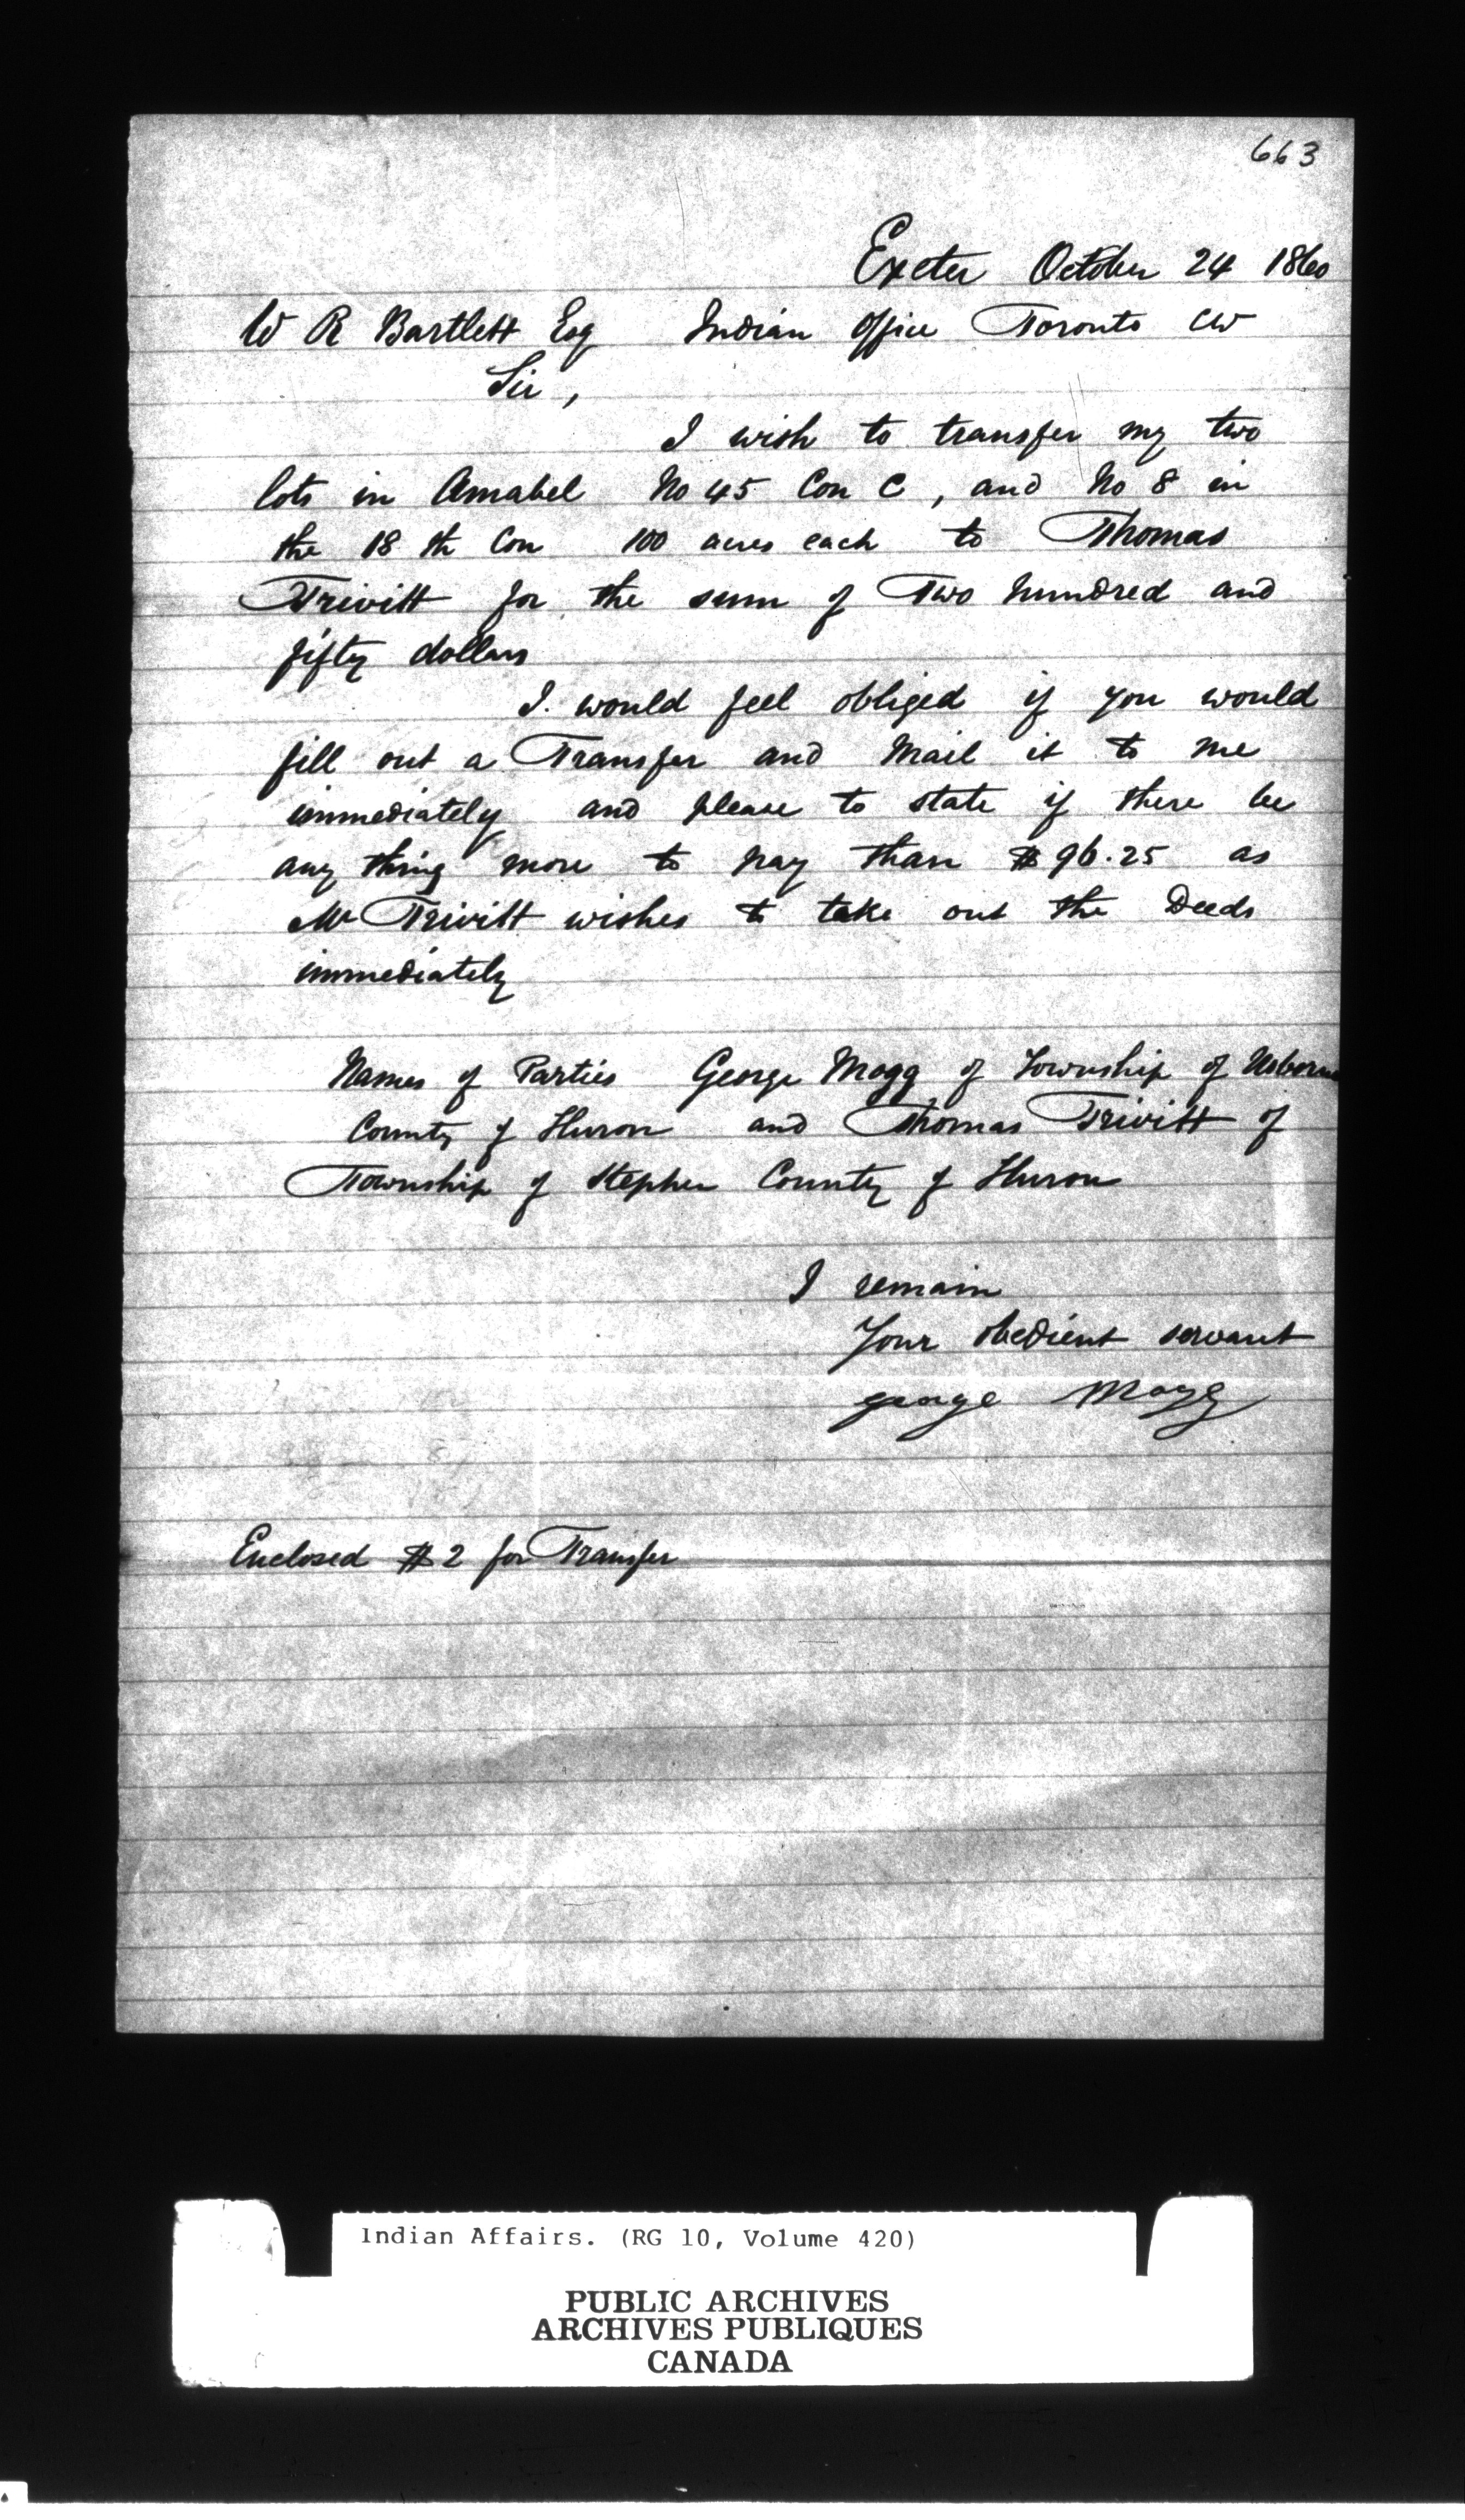 663
Exeter October 24 1860
W R Bartlett Esq Indian Office Toronto CW
Sir,
I wish to transfer my two
lots in Amabel No 45 Con C, and No 8 in
the 18 th Con 100 acres each to Thomas
Trivitt for the sum of Two hundred and
fifty dollars
I. would feel obliged if you would
fill out a Transfer and Mail it to me
immediately and please to state if there be
any thing more to pay than $96.25 as
Mr Trivitt wishes to take out the Deeds
immediately
Names of Parties George Mogg of Township of Usborne
County of Huron and Thomas Trivitt of
Township of Stephen County of Huron
I remain
Your obedient servant
george Mogg
Enclosed $2 for Transfer
Indian Affairs. (RG 10, Volume 420)
PUBLIC ARCHIVES
ARCHIVES PUBLIQUES
CANADA